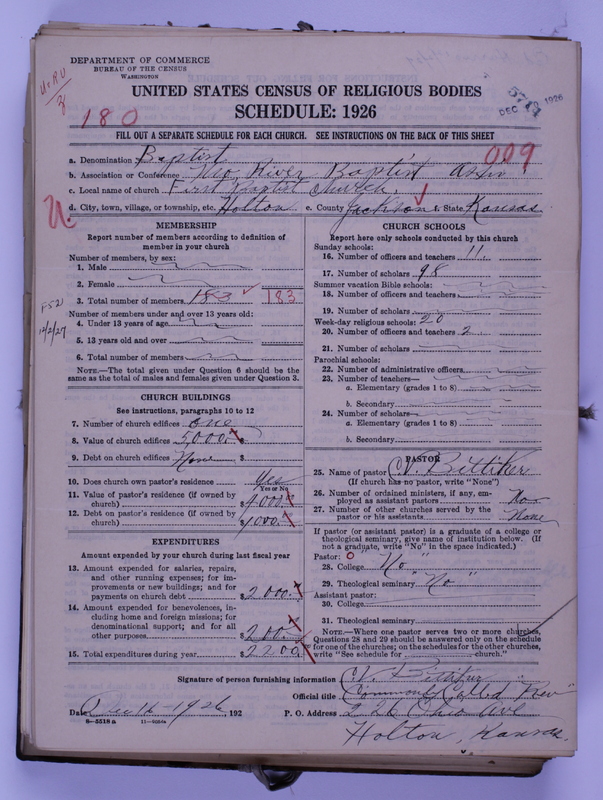 DEPARTMENT OF COMMERCE
BUREAU OF THE CENSUS
WASHINGTON
UNITED STATES CENSUS OF RELIGIOUS BODIES
SCHEDULE: 1926
DEC 1926
180
FILL OUT A SEPARATE SCHEDULE FOR EACH CHURCH. SEE INSTRUCTIONS ON THE BACK OF THIS SHEET
a. Denomination Baptist
009
b. Association or Conference River Baptist
c. Local name of church First Baptist Church.
d. City, town, village, or township, etc. Holton e. County Jackson f. State Kansas
MEMBERSHIP
Report number of members according to definition of
member in your church
Number of members, by sex:
1. Male
2. Female
3. Total number of members 183 183
Number of members under and over 13 years old:
4. Under 13 years of age
5. 13 years old and over
6. Total number of members
NOTE.—The total given under Question 6 should be the
same as the total of males and females given under Question 3.
CHURCH BUILDINGS
See instructions, paragraphs 10 to 12
7. Number of church edifices one
8. Value of church edifices 5,000. $
9. Debt on church edifices None $
10. Does church own pastor's residence Yes
Yes or No
11. Value of pastor's residence (if owned by
church) $4000.
12. Debt on pastor's residence (if owned by
church) $1000.
EXPENDITURES
Amount expended by your church during last fiscal year
13. Amount expended for salaries, repairs,
and other running expenses; for im-
provements or new buildings; and for
payments on church debt $2000.
14. Amount expended for benevolences, in-
cluding home and foreign missions; for
denominational support; and for all
other purposes 200.
15. Total expenditures during year $2200.
CHURCH SCHOOLS
Report here only schools conducted by this church
Sunday schools:
16. Number of officers and teachers 11.
17. Number of scholars 98
Summer vacation Bible schools:
18. Number of officers and teachers
19. Number of scholars
Week-day religious schools: 20
20. Number of officers and teachers 2
21. Number of scholars
Parochial schools:
22. Number of administrative officers
23. Number of teachers—
a. Elementary (grades 1 to 8)
b. Secondary
24. Number of scholars—
a. Elementary (grades 1 to 8)
b. Secondary
PASTOR
25. Name of pastor C. V. Bittiker
(If church has no pastor, write "None")
26. Number of ordained ministers, if any, em-
ployed as assistant pastors No
27. Number of other churches served by the
pastor or his assistants None
If pastor (or assistant pastor) is a graduate of a college or
theological seminary, give name of institution below. (If
not a graduate, write "No" in the space indicated.)
Pastor: 0
28. College No
29. Theological seminary "No"
Assistant pastor:
30. College
31. Theological seminary
NOTE.—Where one pastor serves two or more churches,
Questions 28 and 29 should be answered only on the schedule
for one of the churches; on the schedules for the other churches,
write "See schedule for church."
Signature of person furnishing information C. V. Bittiker
Official title Commonly Called "Rev"
Date Dec 16-1926, 192 P. O. Address Ohio Ave
8-5518a
Holton, Kansas.